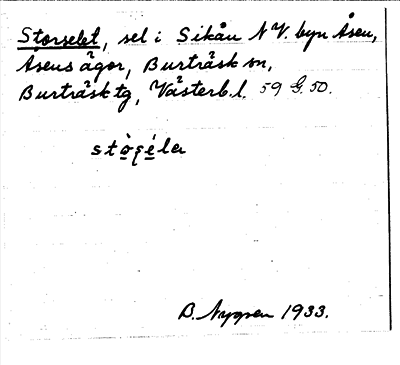 Storselet, sel i Sikån N.V. byn Åsen,
Åsens ägor, Burträsk sn,
Burträsk tg, Västerb. l. 59 G. 50.
stò̱ʂé̱lə
B. Nygren 1933.